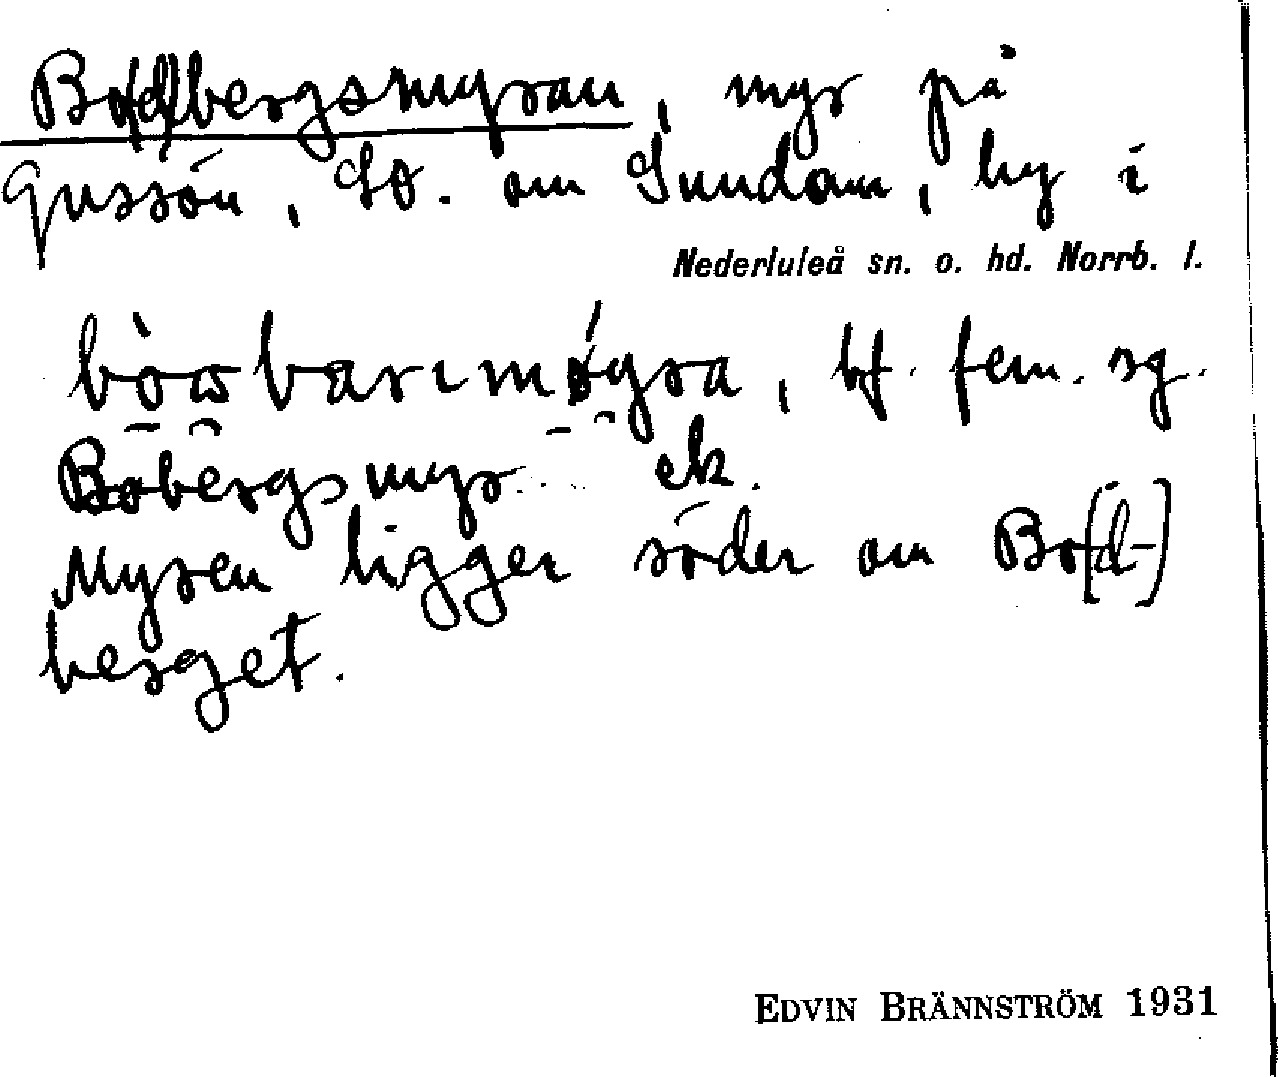 Bo(d)bergsmyran, myr på
Gussön, SO. om Sundom, by i
Nederluleå sn. o. hd. Norrb. l.
bf. fem. sg.
Bobergsmyr ek.
Myren ligger söder om Bo[d-]
berget.
EDVIN BRÄNNSTRÖM 1931